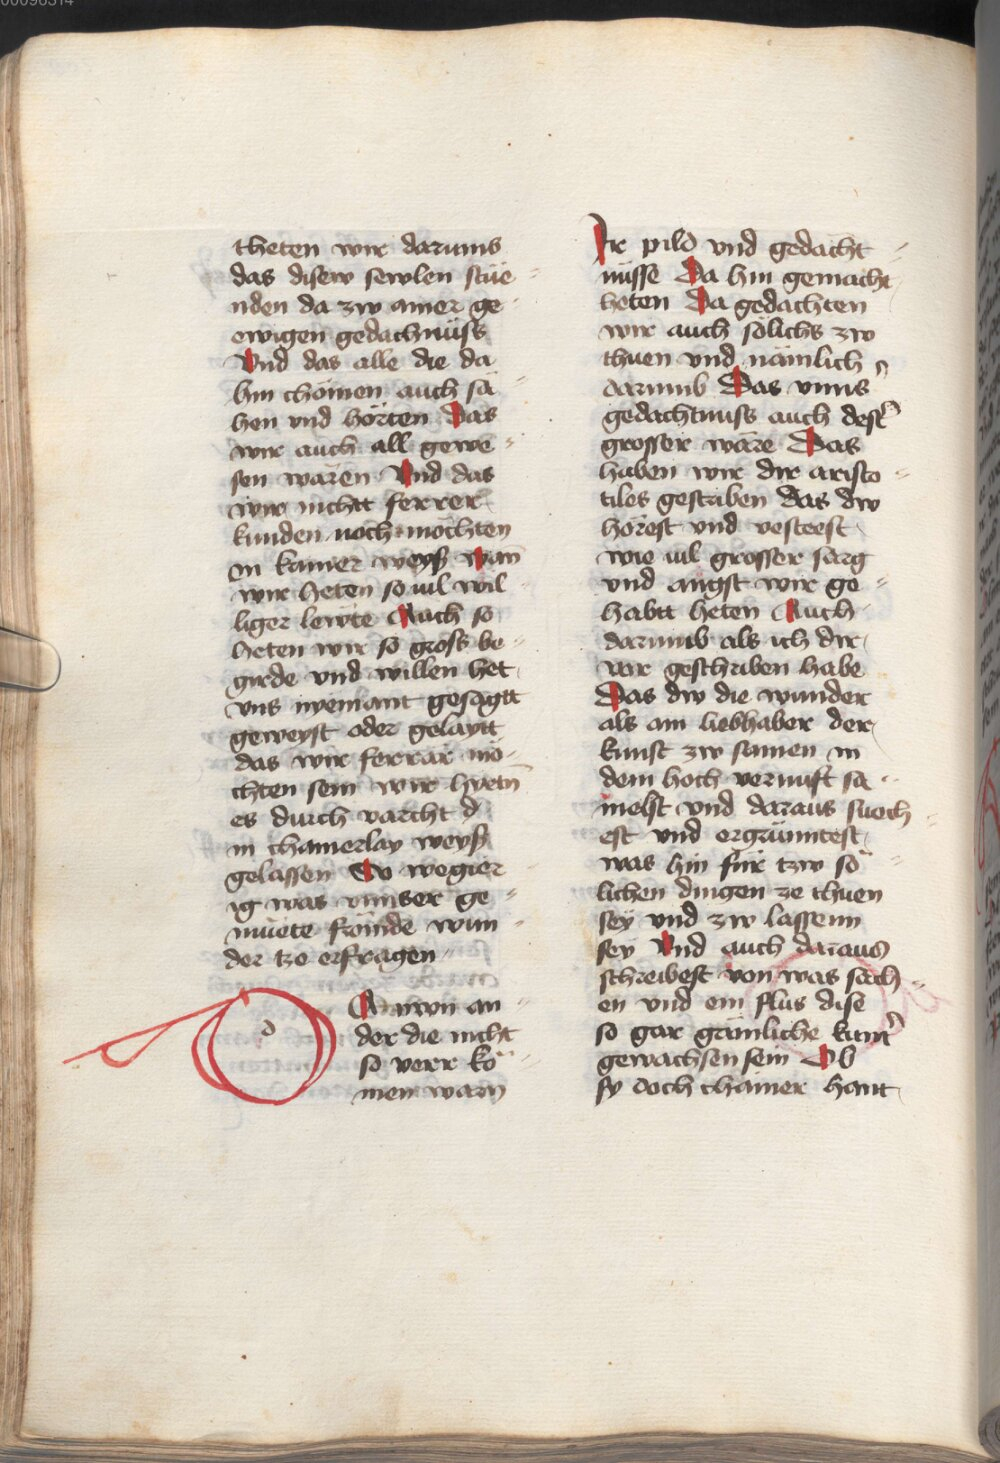 00096314
theten wir darumb
das disew sewlen stüe
nden da zw ainer ge
ewigen gedachnüss
Vnd das alle die da
hin chömen auch sä
hen vnd hörten Das
wir auch all gewe
sen wären Vnd das
wir nichtt ferrer
kunden noch möchten
in kainer weyß wan
wir heten so uil wil
liger lewte Auch so
heten wir so gross be
girde vnd willen het
vns nyemant gesagtt
geweyst oder gelaytt
das wir ferrär mö
chten sein wir hyetn
es durch varcht d
in chainerlay weyß
gelassen Do wegier
ig was vnnser ge
müete frömde wun
der tzo erfragen
d
O A nwn an
der die nicht
so verr kö
men warn
Ir pild vnd gedächt
nüsse Da hin gemacht
heten Da gedachten
wir auch sölichs zw
thuen vnd nämlich
darumb Das vnns
gedachtnuss auch dest
grosser wäre Das
haben wir dir aristo
tiles gestriben das dw
hörest vnd vesteest
wie uil grosser sarg
vnd angst wir ge
habtt heten Auch
darumb als ich dir
vor geschriben habe
Das dw die wunder
als ain liebhaber der
kunst zw samen in
dem hoch vernuft sä
melst vnd daraus suech
est vnd ergrünntest
was hin für tzw sö
lichen dingen ze thuen
sey vnd zw lassenn
sey Vnd auch daraus
schreibest von was säch
en vnd ein flus dise
so gar grämliche
gewachsen sein Ob
sy doch chainer hant